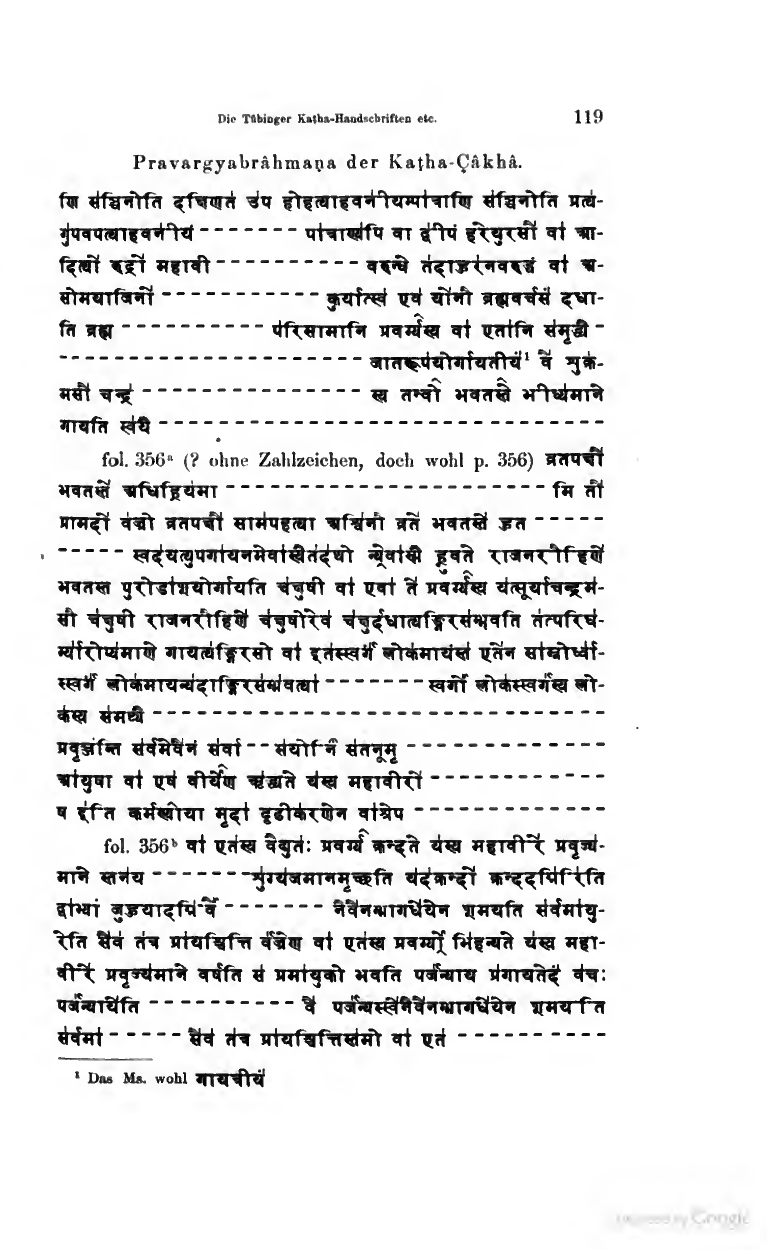 Die Tübinger Kaṭha-Handschriften etc. 119
Pravargyabrâhmaṇa der Kaṭha-Çâkhâ.
णि संचिनोति दक्षिणत उप होहत्याहवनीयम्पात्राणि संचिनोति प्रत्य-
गुपवपत्याहवनीयं - - - - - - - पात्राण्यपि वा द्वीपं हरेयुरसौ वा आ-
दित्यो रुद्रो महावी - - - - - - - - - - - वरुन्धे तदाहुरनवरुद्धं वा अ-
सोमयाजिनो - - - - - - - - - - - - कुर्यात्स्व एव योनौ ब्रह्मवर्चसं दधा-
ति ब्रह्म - - - - - - - - - - - परिसामानि प्रवर्ग्यस्य वा एतानि समृद्धी -
- - - - - - - - - - - - - - - - - - - - - जातरूपयोर्गायतीयं¹ वै शुक्र-
मसौ चन्द्रं - - - - - - - - - - - - - - - - स्य तन्वो भवतस्ते अभीध्यमाने
गायति स्वयै - - - - - - - - - - - - - - - - - - - - - - - - - - - - - -
fol. 356ᵃ (? ohne Zahlzeichen, doch wohl p. 356) व्रतपक्षौ
भवतस्ते अधिह्रियमा - - - - - - - - - - - - - - - - - - - - - - मि तौ
प्रामदो वज्रो व्रतपक्षौ सामपहत्या अश्विनो व्रते भवतस्ते हुत - - - - -
- - - - - स्वदयत्युपगायनमेवास्यैतदथो न्येवास्मै ह्नुवते राजनरौहिणे
भवतस्त पुरोडाशयोर्गायति चक्षुषी वा एवा ते प्रवर्ग्यस्य यत्सूर्याचन्द्रम-
सौ चक्षुषी राजनरौहिणे चक्षुषोरेव चक्षुर्दधात्यङ्गिरसम्भवति तत्परिघ-
र्म्यारोप्यमाणे गायत्यङ्गिरसो वा इतस्स्वर्गं लोकमायंस्त एतेन साम्नोर्ध्वा-
स्स्वर्गं लोकमायन्यदाङ्गिरसंभवत्या - - - - - - - स्वर्गो लोकस्स्वर्गस्य लो-
कस्य समष्ट्यै - - - - - - - - - - - - - - - - - - - - - - - - - - - - - -
प्रवृञ्जन्ति सर्वमेवैनं सर्वा - - सयोनिं सतनूमृ - - - - - - - - - - - - -
आयुषा वा एष वीर्येण ऋध्यते यस्य महावीरो - - - - - - - - - - - -
ष इति कर्मण्योया मृदा दृढीकरणेन वाश्रेप - - - - - - - - - - - - -
fol. 356ᵇ वा एतस्य वैद्युतः प्रवर्ग्य क्रन्दते यस्य महावीरे प्रवृज्य-
माने स्तनय - - - - - - - - शुग्यजमानमृच्छति यदक्रन्दो क्रन्ददग्निरिति
द्वाभ्यां जुहुयादग्निर्वै - - - - - - - नैवैनम्भागधेयेन शमयति सर्वमायु-
रेति सैव तत्र प्रायश्चित्ति र्वज्रेण वा एतस्य प्रवर्ग्यो भिहन्यते यस्य महा-
वीरे प्रवृज्यमाने वर्षति स प्रमायुको भवति पर्जन्याय प्रगायतेदं वचः
पर्जन्यायेति - - - - - - - - - - - वै पर्जन्यस्स्वेनैवैनम्भागधेयेन शमयति
सर्वमा - - - - - सैव तत्र प्रायश्चित्तिस्तमो वा एत - - - - - - - - - - -
¹ Das Ms. wohl गायत्रीयं